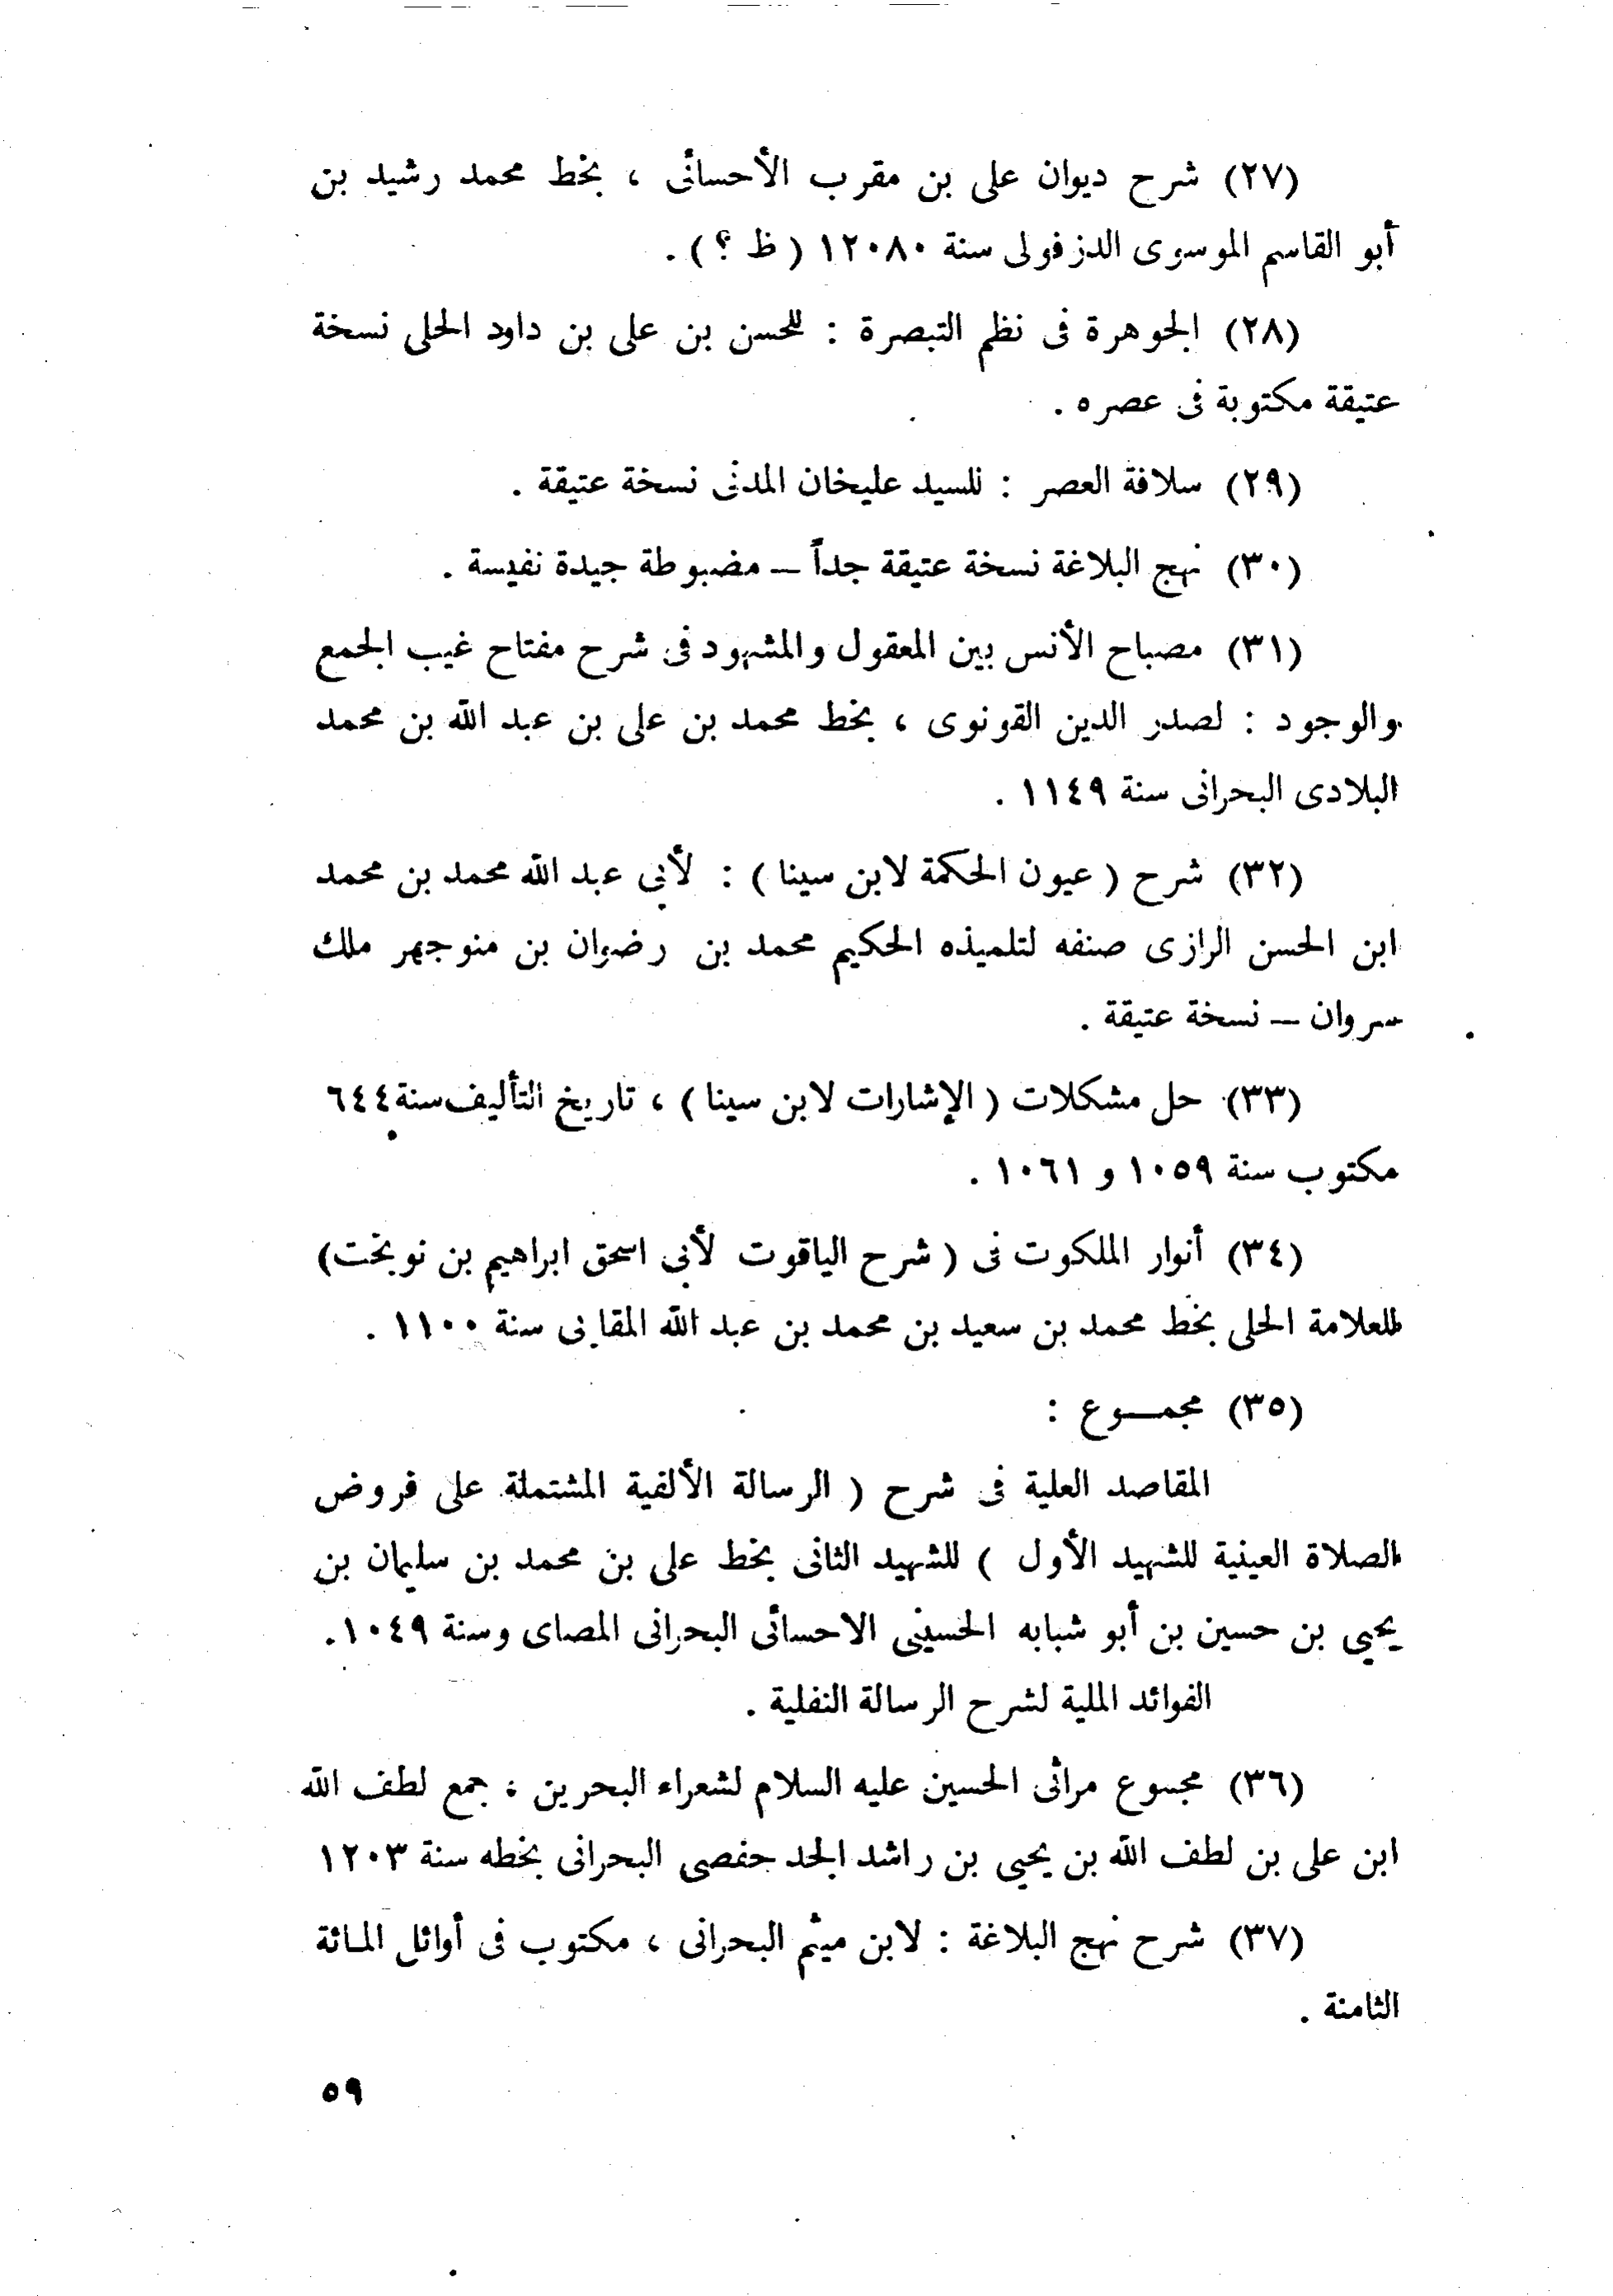 (٢٧) شرح ديوان على بن مقرب الأحسائى ، بخط محمد رشيد بن
أبو القاسم الموسوى الدزفولى سنة ١٢٠٨٠ ( ظ ؟ ) .
(٢٨) الجوهرة فى نظم التبصرة : للحسن بن على بن داود الحلى نسخة
عتيقة مكتوبة فى عصره .
(٢٩) سلافة العصر : للسيد عليخان المدنى نسخة عتيقة .
(٣٠) نهج البلاغة نسخة عتيقة جداً – مضبوطة جيدة نفيسة .
(٣١) مصباح الأنس بين المعقول والمشهود فى شرح مفتاح غيب الجمع
والوجود : لصدر الدين القونوى ، بخط محمد بن على بن عبد الله بن محمد
البلادى البحرانى سنة ١١٤٩ .
(٣٢) شرح ( عيون الحكمة لابن سينا ) : لأبى عبد الله محمد بن محمد
ابن الحسن الرازى صنفه لتلميذه الحكيم محمد بن رضوان بن منوجهر ملك
سروان – نسخة عتيقة .
(٣٣) حل مشكلات ( الإشارات لابن سينا ) ، تاريخ التأليف سنة ٦٤٤
مكتوب سنة ١٠٥٩ و ١٠٦١ .
(٣٤) أنوار الملكوت فى ( شرح الياقوت لأبى اسحق ابراهيم بن نوبخت)
للعلامة الحلى بخط محمد بن سعيد بن محمد بن عبد الله المقابى سنة ١١٠٠ .
(٣٥) مجمـــوع :
المقاصد العلية فى شرح ( الرسالة الألفية المشتملة على فروض
الصلاة العينية للشهيد الأول ) للشهيد الثانى بخط على بن محمد بن سليمان بن
يحيى بن حسين بن أبو شبابه الحسينى الاحسائى البحرانى المصاى وسنة ١٠٤٩.
الفوائد الملية لشرح الرسالة النفلية .
(٣٦) مجموع مراثى الحسين عليه السلام لشعراء البحرين ، جمع لطف الله
ابن على بن لطف الله بن يحيى بن راشد الجد حفصى البحرانى بخطه سنة ١٢٠٣
(٣٧) شرح نهج البلاغة : لابن ميثم البحرانى ، مكتوب فى أوائل المائة
الثامنة .
٥٩